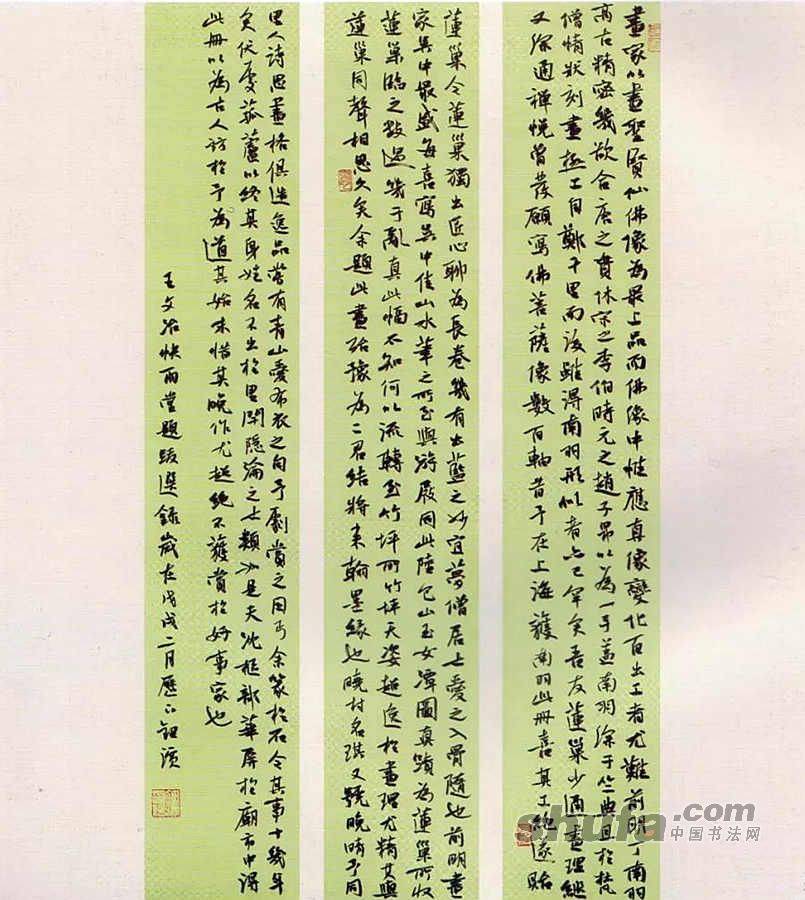 畫家以畫聖賢仙佛像為最上品而佛像中惟應真像變化百出工者尤難前明丁南羽
高古精密幾欲合唐之貫休宋之李伯時元之趙子昂以為一手蓋南羽深于竺典且於梵
僧情狀刻畫極工自鄭千里而後雖得南羽形似者亦已罕矣吾友蓮巢少通畫理繼
又深通禪悅曾發願寫佛菩薩像數百軸昔予在上海獲南羽此冊喜其工絕遂貽
蓮巢今蓮巢獨出匠心聊為長卷幾有出藍之妙宜夢僧居士愛之入骨隨也前明畫
家吳中最盛每喜寫吳中佳山水筆之所至與游屐同此陸包山玉女潭圖真蹟為蓮巢所收
蓮巢臨之數過幾于亂真此幅不知何以流轉至竹坪所竹坪天姿超逸於畫理尤精其與
蓮巢同聲相思久矣余題此畫殆豫為二君結將來翰墨緣也曉村名琪又號晚晴予同
里人詩思畫格俱造逸品嘗有青山愛布衣之句予劇賞之因丐余篆於石今其事十幾年
矣伏處菰蘆以終其身姓名不出於里閈隱淪之士類如是夫沈樞部華屏於廟市中得
此冊以為古人訪於予為道其始末惜其晚作尤超絕不獲賞於好事家也
王文治快雨堂題跋選錄歲在戊戌二月歷下
shufa.com
中国书法网